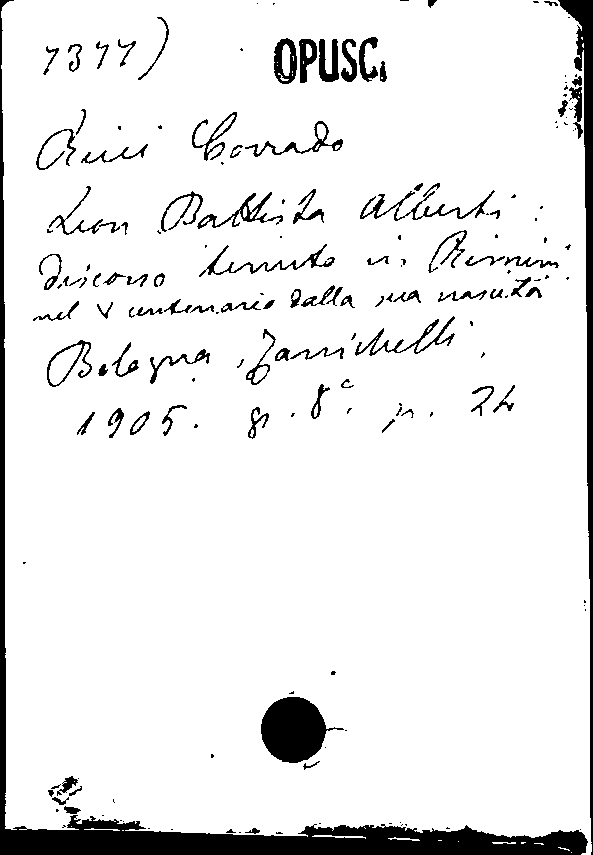 7377) OPUSC.
Ricci Corrado
Leon Battista Alberti:
discorso tenuto in Rimini
nel V centenario dalla sua nascita
Bologna, Zanichelli,
1905. gr. 8°. p. 24